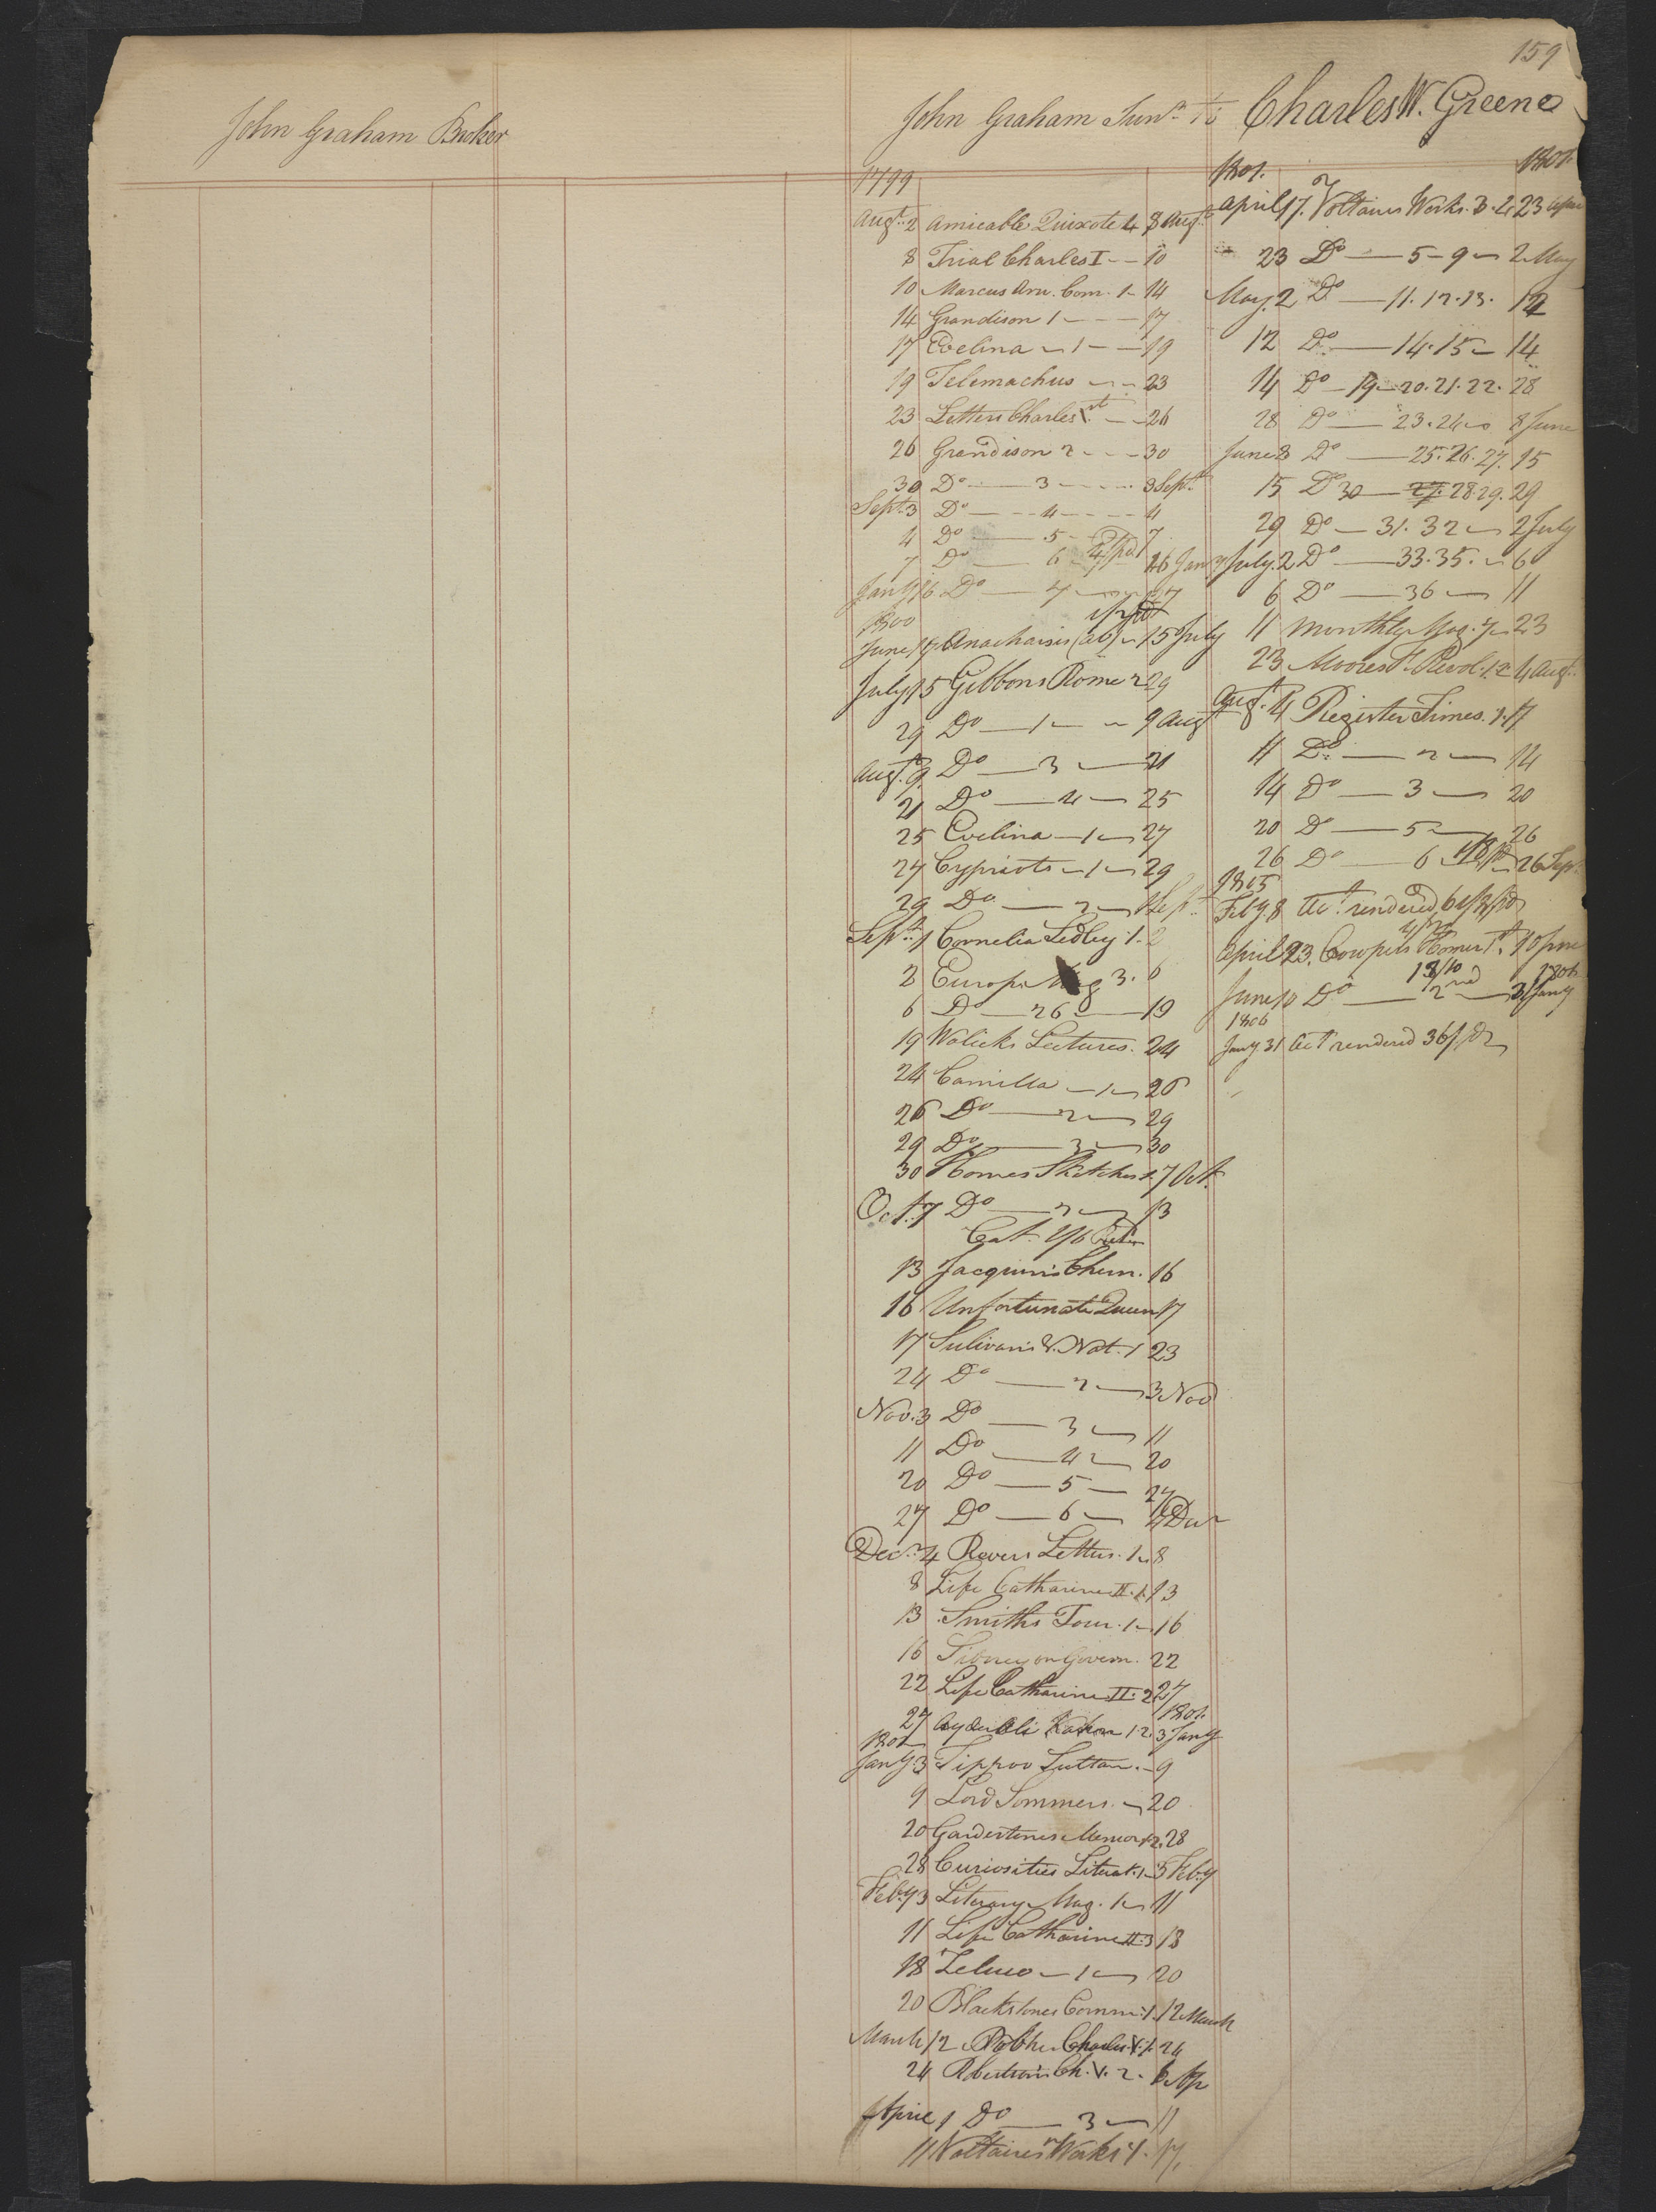 159
John Graham Broker
John Graham Junr. to Charles W. Greene
1799
Augt. 2 Amicable Quixote 4 8 Augt.
8 Trial Charles I — 10
10 Marcus Ant. Com. 1 — 14
14 Grandison 1 — 17
17 Evelina — 1 — 19
19 Telemachus — 23
23 Letters Charles 1st — 26
26 Grandison 2 — 30
30 Do — 3 — 3 Sept.
Sept. 3 Do — 4 — 4
4 Do — 5 — 7
7 Do — 6 — 16 Jany
Jany 16 Do — 7 — 27
1800
June 17 Anacharsis (ab) — 15 July
July 15 Gibbons Rome 2 29
29 Do — 1 — 9 Augt
Augt. 9 Do — 3 — 21
21 Do — 4 — 25
25 Evelina — 1 — 27
27 Cypriots — 1 — 29
29 Do — 2 — 1 Sept.
Sept. 1 Cornelia Sedley 1. 2
2 Europn. Mag 3. 6
6 Do — 26 — 19
19 Walicks Lectures. 24
24 Camilla — 1 — 26
26 Do — 2 — 29
29 Do — 3 — 30
30 Homes Sketches 1. 7 Oct.
Oct. 7 Do — 2 — 13
Cat. 2/6
13 Jacquins Chem. 16
16 Unfortunate Queen 17
17 Sulivans V. Nat. 1 23
24 Do — 2 — 3 Nov
Nov. 3 Do — 3 — 11
11 Do — 4 — 20
20 Do — 5 — 27
27 Do — 6 — 4 Decr
Decr. 4 Raveri Letters. 1 — 8
8 Life Catharine II. 1. 13
13 Smiths Tour. 1 — 16
16 Sidney on Govern. 22
22 Life Catharine II. 2 27
1801.
27 Ayder Ali Kahn 1.2. 3 Jany
1801
Jany 3 Tippoo Sultan. — 9
9 Lord Sommers. — 20
20 Gardenstones Memor. 1.2. 28
28 Curiosities Literat. 1 — 3 Feby
Feby 3 Literary Mag. 1 — 11
11 Life Catharine II. 3 18
18 Zeluco — 1 — 20
20 Blackstones Comm. 1. 12 March
March 12 Robtn. Charles V. 1. 24
24 Robertsons Ch. V. 2. 1 Ap
April 1 Do — 3 — 11
11 Voltaires Works 1. 17.
1801. 1801.
April 17. Voltaires Works. 3. 4. 23 Apr
23 Do — 5 — 9 — 2 May
May 2 Do — 11. 12. 13. 12
12 Do — 14. 15 — 14
14 Do — 19 — 20. 21. 22. 28
28 Do — 23. 24 — 8 June
June 8 Do — 25. 26. 27. 15
15 Do 30 — 27. 28. 29. 29
29 Do — 31. 32 — 2 July
July 2 Do — 33. 35. — 6
6 Do — 36 — 11
11 Monthly Mag. 7 — 23
23 Moores F. Revol. 1. 2 4 Augt.
Augt. 4 Register Times. 1. 11
11 Do — 2 — 14
14 Do — 3 — 20
20 Do — 5 — 26
26 Do — 6 — 26 Sepr.
1805
Feby. 8 Act. rendered
April 23. Cowpers Homer 1st. 10 June
1806
June 10 Do — 2nd — 31 Jany
1806
Jany. 31 Act rendered 36/